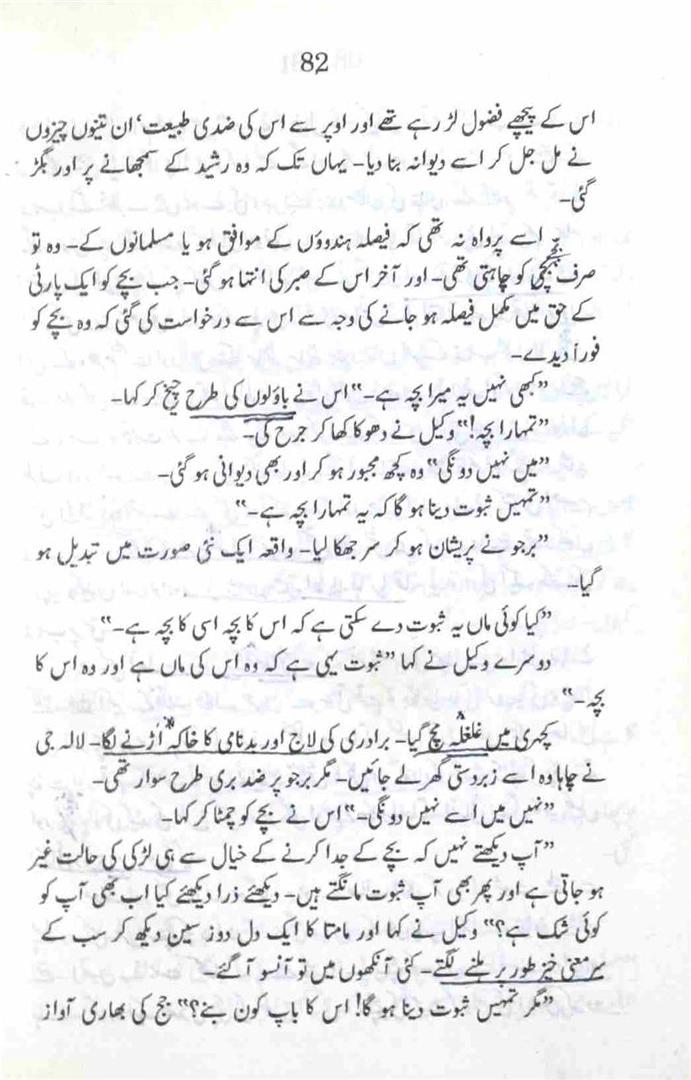 82
اس کے پیچھے فضول لڑ رہے تھے اور اوپر سے اس کی ضدی طبیعت‘ ان تینوں چیزوں
نے مل جل کر اسے دیوانہ بنا دیا۔ یہاں تک کہ وہ رشید کے سمجھانے پر اور بگڑ
گئی۔
اسے پرواہ نہ تھی کہ فیصلہ ہندوؤں کے موافق ہو یا مسلمانوں کے۔ وہ تو
صرف بچے کو چاہتی تھی۔ اور آخر اس کے صبر کی انتہا ہو گئی۔ جب بچے کو ایک پارٹی
کے حق میں مکمل فیصلہ ہو جانے کی وجہ سے اس سے درخواست کی گئی کہ وہ بچے کو
فوراً دیدے۔
”کبھی نہیں یہ میرا بچہ ہے۔“ اس نے باؤلوں کی طرح چیخ کر کہا۔
”تمہارا بچہ!“ وکیل نے دھوکا کھا کر جرح کی۔
”میں نہیں دونگی“ وہ کچھ مجبور ہو کر اور بھی دیوانی ہو گئی۔
”تمہیں ثبوت دینا ہو گا کہ یہ تمہارا بچہ ہے۔“
”برجو نے پریشان ہو کر سر جھکا لیا۔ واقعہ ایک نئی صورت میں تبدیل ہو
گیا۔
”کیا کوئی ماں یہ ثبوت دے سکتی ہے کہ اس کا بچہ اسی کا بچہ ہے۔“
دوسرے وکیل نے کہا ”ثبوت یہی ہے کہ وہ اس کی ماں ہے اور وہ اس کا
بچہ۔“
کچہری میں غلغلہ مچ گیا۔ برادری کی لاج اور بدنامی کا خاکہ اڑنے لگا۔ لالہ جی
نے چاہا وہ اسے زبردستی گھر لے جائیں۔ مگر برجو پر ضد بری طرح سوار تھی۔
”نہیں میں اسے نہیں دونگی۔“ اس نے بچے کو چمٹا کر کہا۔
”آپ دیکھتے نہیں کہ بچے کے جدا کرنے کے خیال سے ہی لڑکی کی حالت غیر
ہو جاتی ہے اور پھر بھی آپ ثبوت مانگتے ہیں۔ دیکھئے ذرا دیکھئے کیا اب بھی آپ کو
کوئی شک ہے؟“ وکیل نے کہا اور مامتا کا ایک دل دوز سین دیکھ کر سب کے
سر معنی خیز طور پر ہلنے لگتے۔ کئی آنکھوں میں تو آنسو آ گئے۔
”مگر تمہیں ثبوت دینا ہو گا! اس کا باپ کون بنے؟“ جج کی بھاری آواز